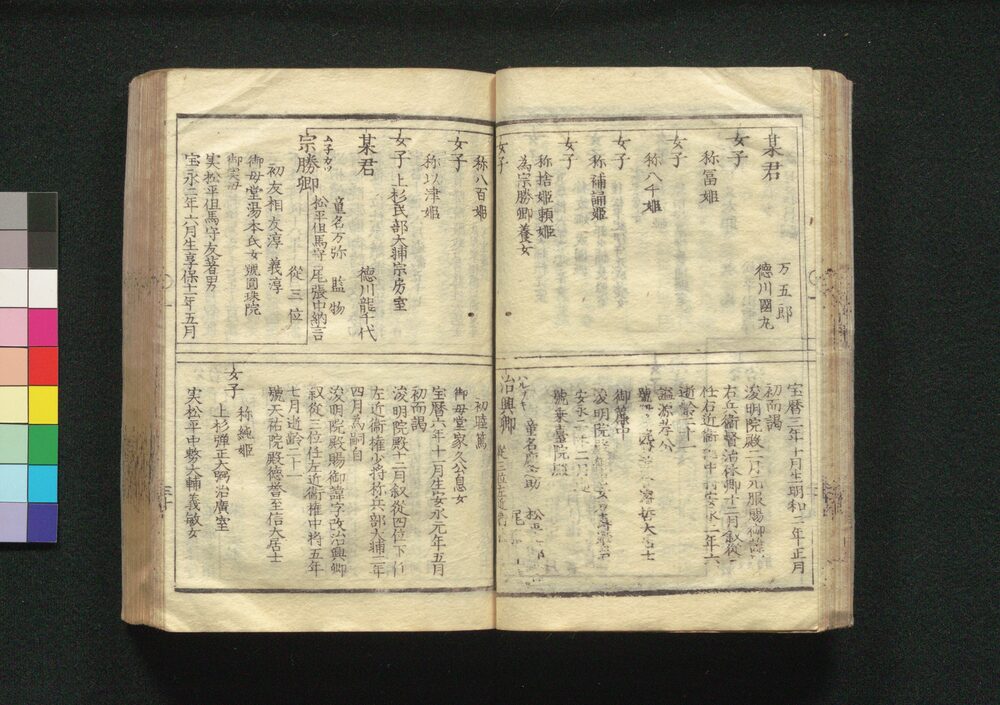 某君
万五郎
徳川國丸
女子
称冨姫
女子
称八千姫
女子
称補誦姫
女子
称捨姫頼姫
為宗勝卿養女
女子
称八百姫
女子
称以津姫
女子 上杉民部大輔宗房室
某君 徳川龍千代
ムネカツ
宗勝卿
童名万弥 監物
松平但馬守 尾張中納言
從三位
初友相友淳義淳
御母堂湯本氏女號圓珠院
御実母
実松平但馬守友著男
宝永二年六月生享保十一年五月
宝暦三年十月生明和二年正月
初而謁
浚明院殿二月元服賜御諱
右兵衛督治休卿十二月叙從
任右近衛権中将安永二年六
逝齢二十一
御簾中
浚明院殿
安永二年十二月
治興卿
ハルオキ
童名 松平
初睦篤
御母堂家久公息女
宝暦六年十一月生安永元年五月
初而謁
浚明院殿十二月叙從四位下任
左近衛権少将称兵部大輔二年
四月為嗣自
浚明院殿賜御諱字改治興卿
叙從三位任左近衛権中将五年
七月逝齢二十一
號天祐院殿徳誉至信大居士
女子
称純姫
上杉弾正大弼治廣室
実松平中務大輔義敏女